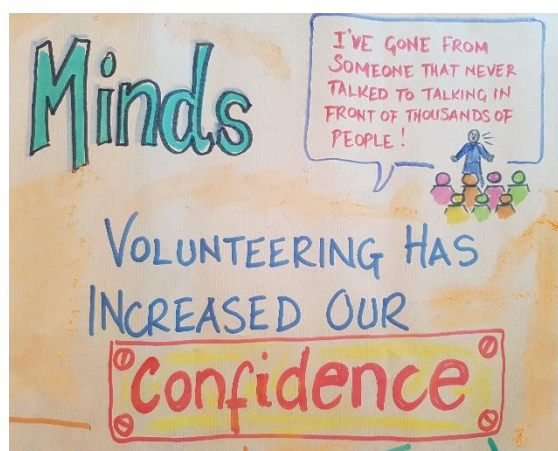 Minds
I'VE GONE FROM
SOMEONE THAT NEVER
TALKED TO TALKING IN
FRONT OF THOUSANDS OF
PEOPLE!
VOLUNTEERING HAS
INCREASED OUR
Confidence